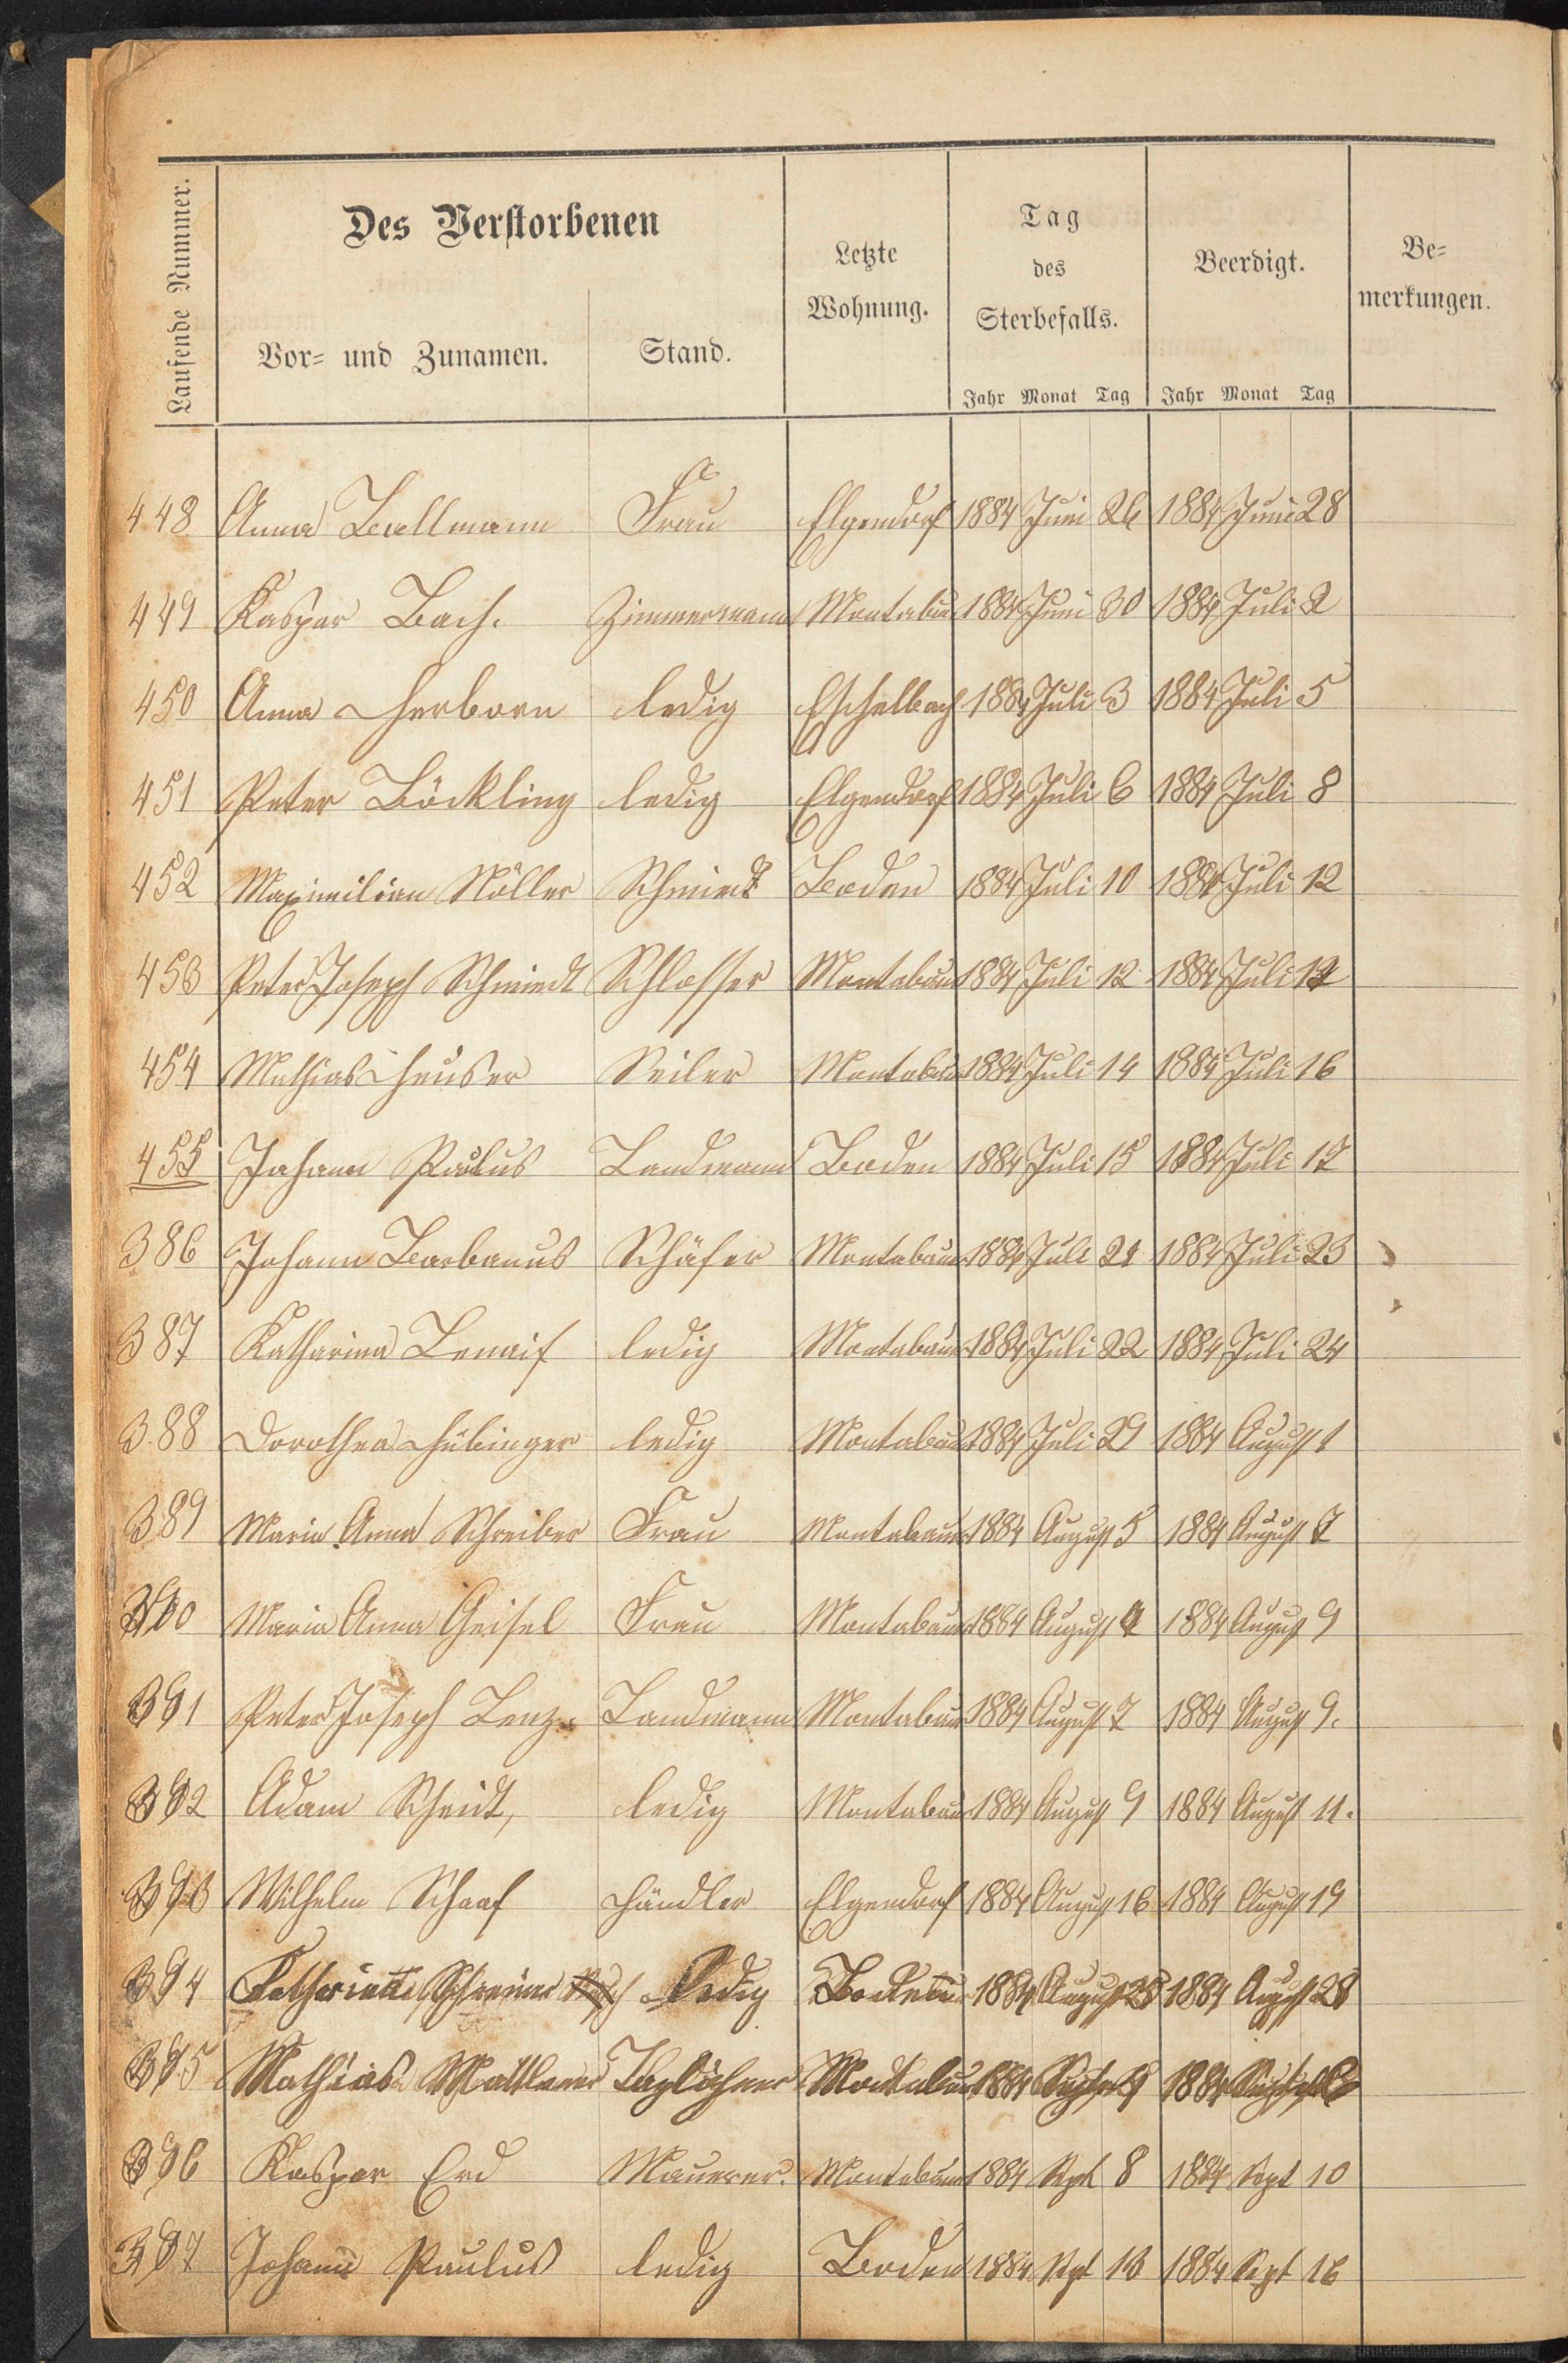 Laufende Nummer.
Des Verstorbenen
Vor- und Zunamen.
Stand.
Letzte
Wohnung.
Tag
des
Sterbefalls.
Jahr Monat Tag
Beerdigt.
Jahr Monat Tag
Be-
merkungen.
448 Anna Ballmann Frau Elgendorf 1884 Juni 26 1884 Juni 28
449 Kaspar Bach. Zimmermann Montabaur 1884 Juni 30 1884 Juli 2
450 Anna Herborn ledig Eschelbach 1884 Juli 3 1884 Juli 5
451 Peter Böckling ledig Elgendorf 1884 Juli 6 1884 Juli 8
452 Maximilian Nöller Schmied Boden 1884 Juli 10 1884 Juli 12
453 Peter Joseph Schmidt Schlosser Montabaur 1884 Juli 12 1884 Juli 14
454 Mathias Heuser Seiler Montabaur 1884 Juli 14 1884 Juli 16
455 Johann Paulus Landmann Boden 1884 Juli 15 1884 Juli 17
386 Johann Barbanus Schäfer Montabaur 1884 Juli 21 1884 Juli 23
387 Katharina ledig Montabaur 1884 Juli 22 1884 Juli 24
388 Dorothea Hübinger ledig Montabaur 1884 Juli 29 1884 August 1
389 Maria Anna Schreiber Frau Montabaur 1884 August 5 1884 August 7
390 Maria Anna Geisel Frau Montabaur 1884 August 1884 August 9
391 Peter Joseph Lenz Landmann Montabaur 1884 August 7 1884 August 9.
392 Adam Scheidt, ledig Montabaur 1884 August 9 1884 August 11.
393 Wilhelm Schaaf Händler Elgendorf 1884 August 16 1884 August 19
394 ledig 1884 August 1884 August 28
395 Mathias Taglöhner Montabaur 1884 1884
396 Kaspar Erd Maurer. Montabaur 1884 Sept 8 1884 Sept 10
397 Johann Paulus ledig Boden 1884 Sept 13 1884 Sept 16